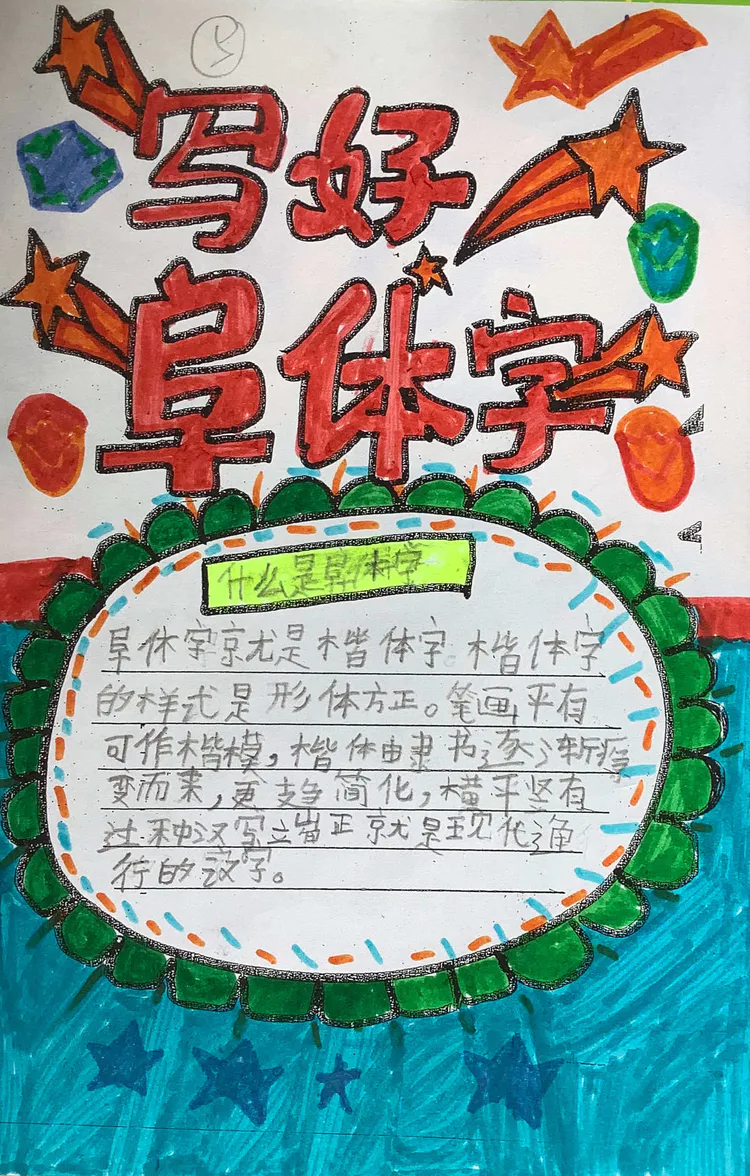 写好
阜体字
什么是阜体字
阜体字京尤是楷体字。楷体字
的样式是形体方正。笔画平有
可作楷模,楷体由隶书逐渐
变而来,更趋简化,横平竖有
过种汉写立岩正就是现代通
行的汉字。